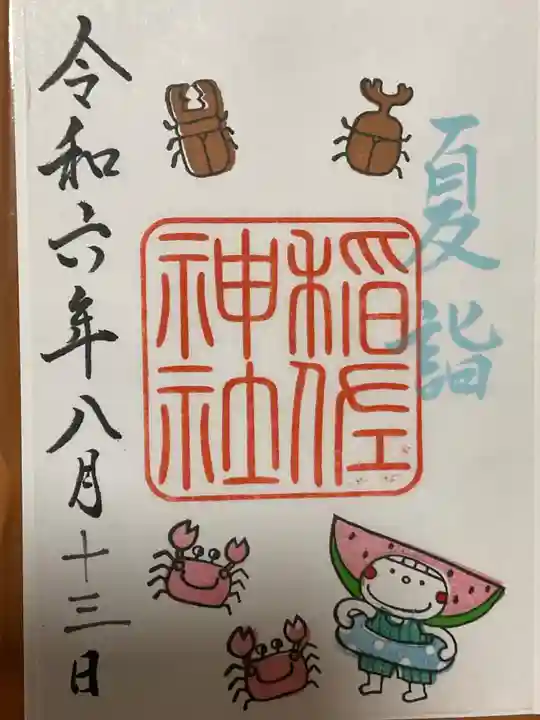 夏詣
稲佐
神社
令和六年八月十三日